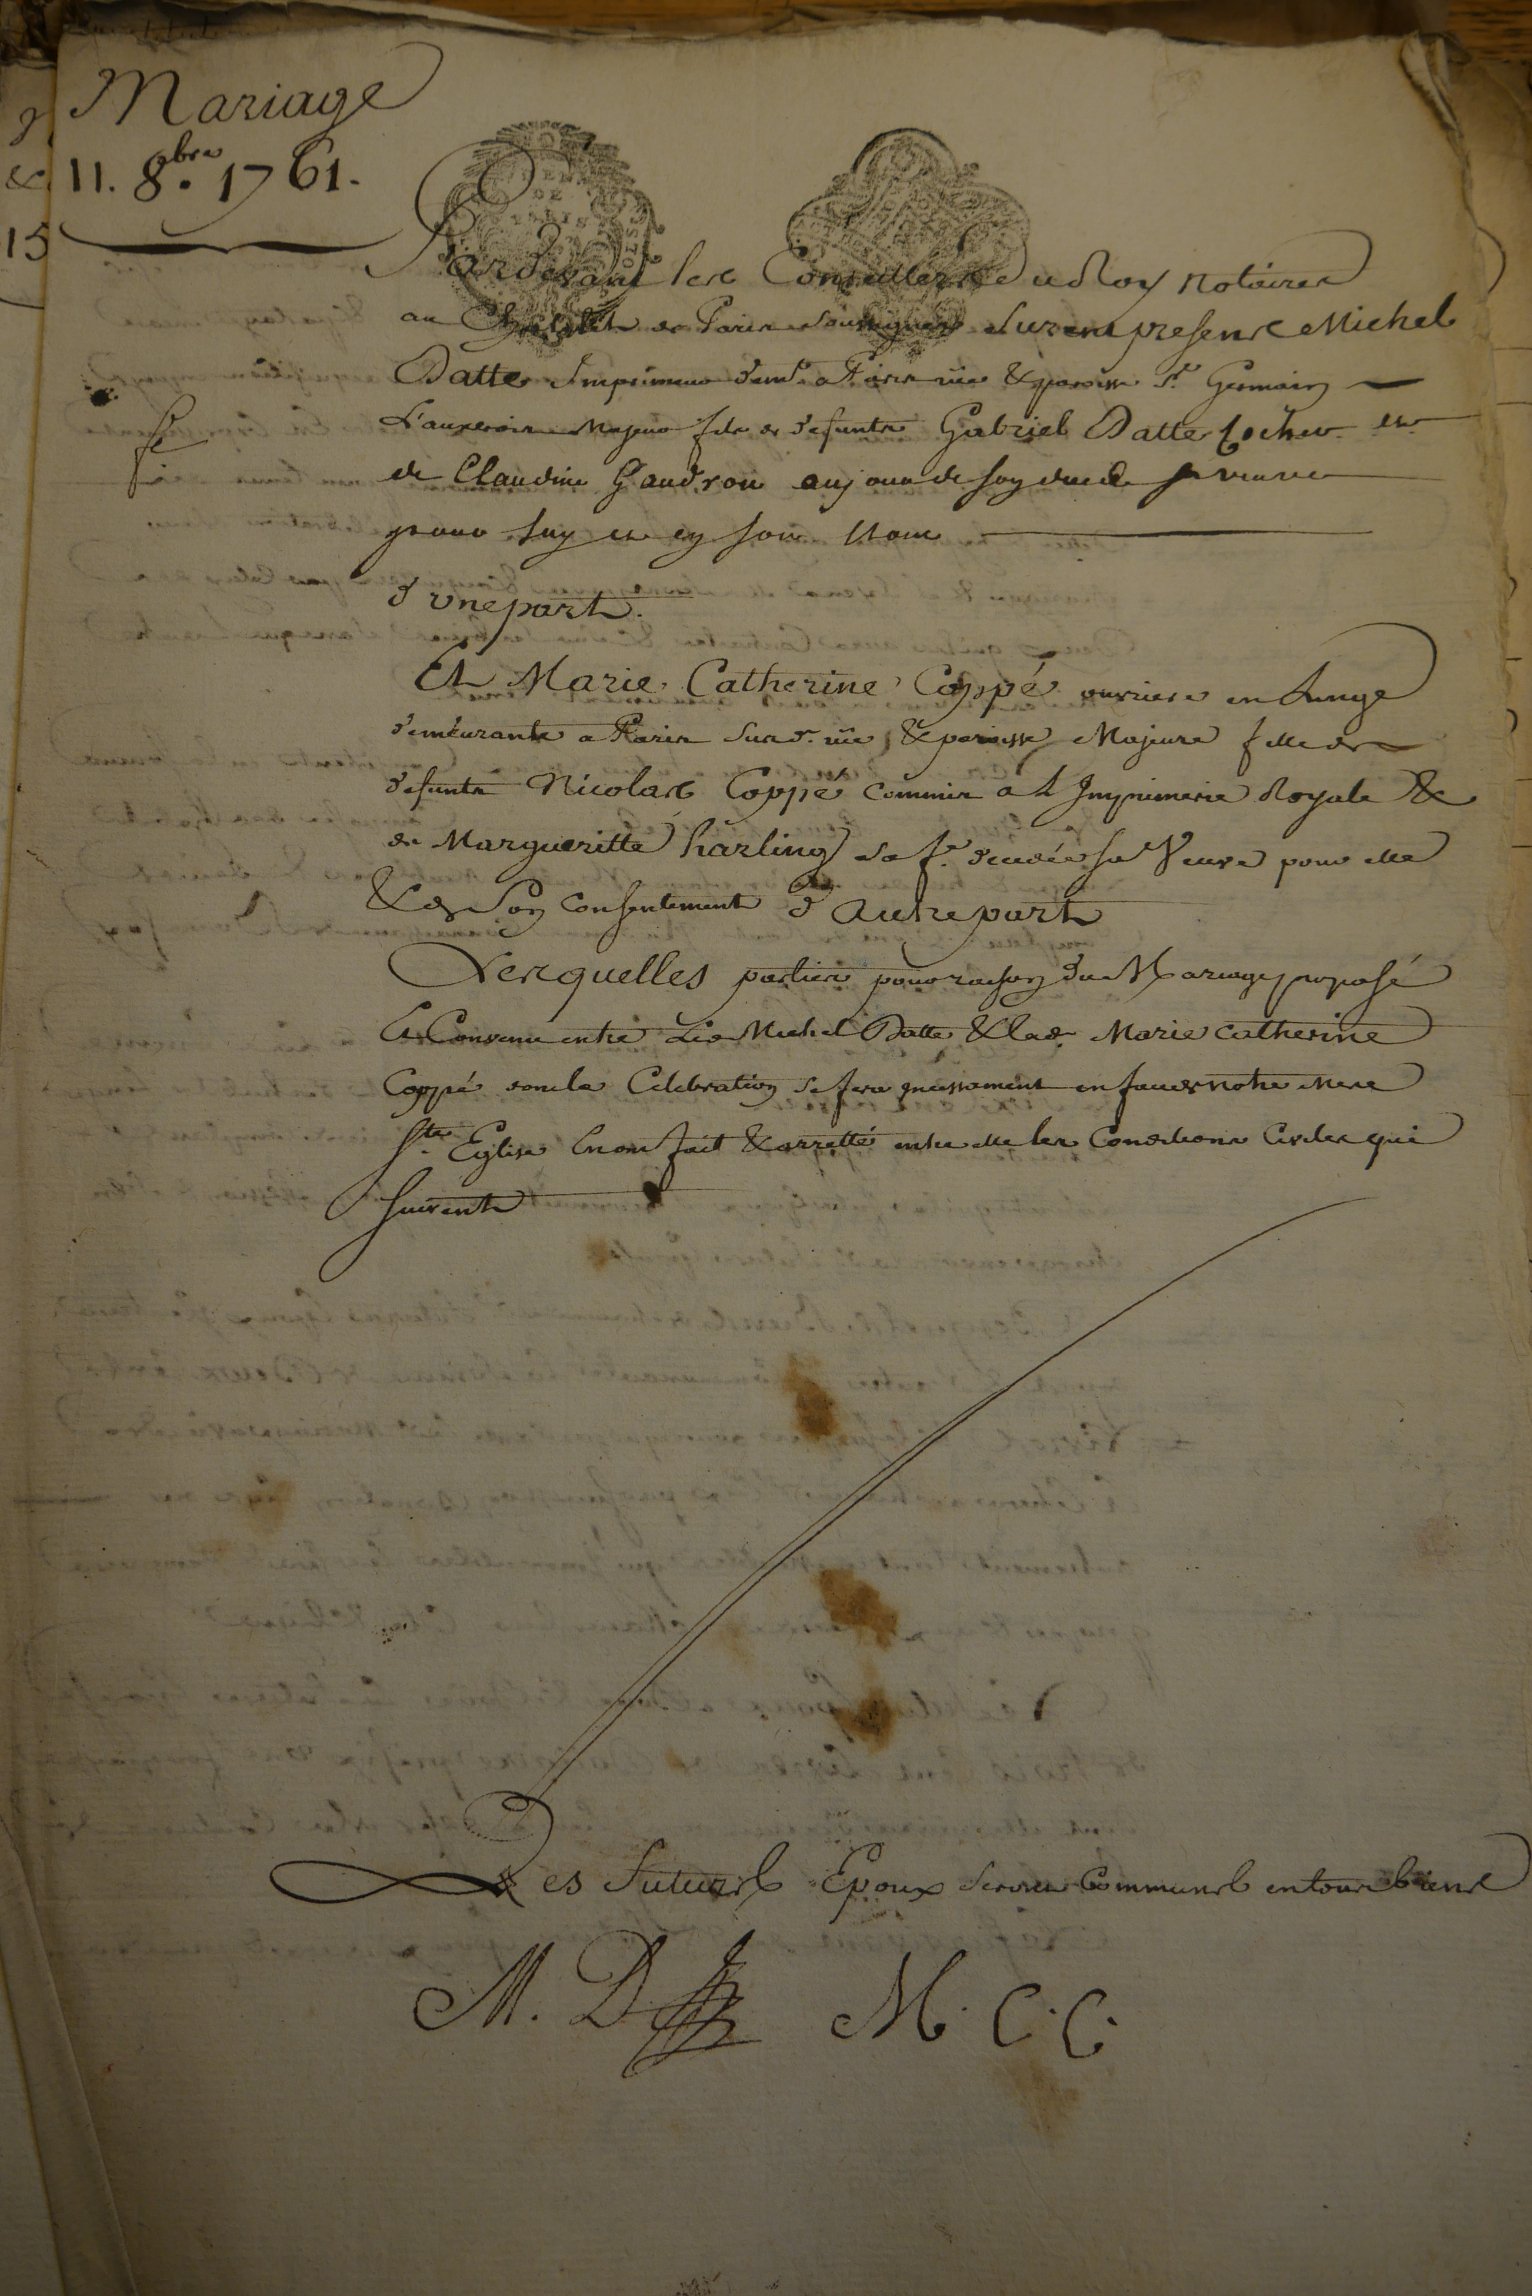 Mariage
11. 8.bre 1761.
Pardevant les Conseillers du Roy Notaires
au Chatelet de Paris soussignés furent presens Michel
Datte Imprimeur demt. a Paris rüe & paroisse St. Germain
L'auxerois Majeur fils de defunts Gabriel Datte Cocher et
de Claudine Gaudron
pour luy et en son nom
d'une part.
Et Marie Catherine Coppé ouvriere en Linge
demeurante a Paris susd. rüe & paroisse Majeure fille de
defunts Nicolas Coppé commis a L Imprimerie Royale &
de Margueritte harling sa fe. decedée sa Veuve pour elle
& de son consentement d'autre part
Lesquelles parties pour raison du Mariage proposé
Et Convenu entre Led Michel Datte & lad. Marie Catherine
Coppé dont la Celebration se fera incessament en face de notre Mere
Ste. Eglise Ont fait & arretté entre elle les Conditions Civiles qui
suivent
Les futurs Epoux seront Communs en tous biens
M. D. M. C. C.